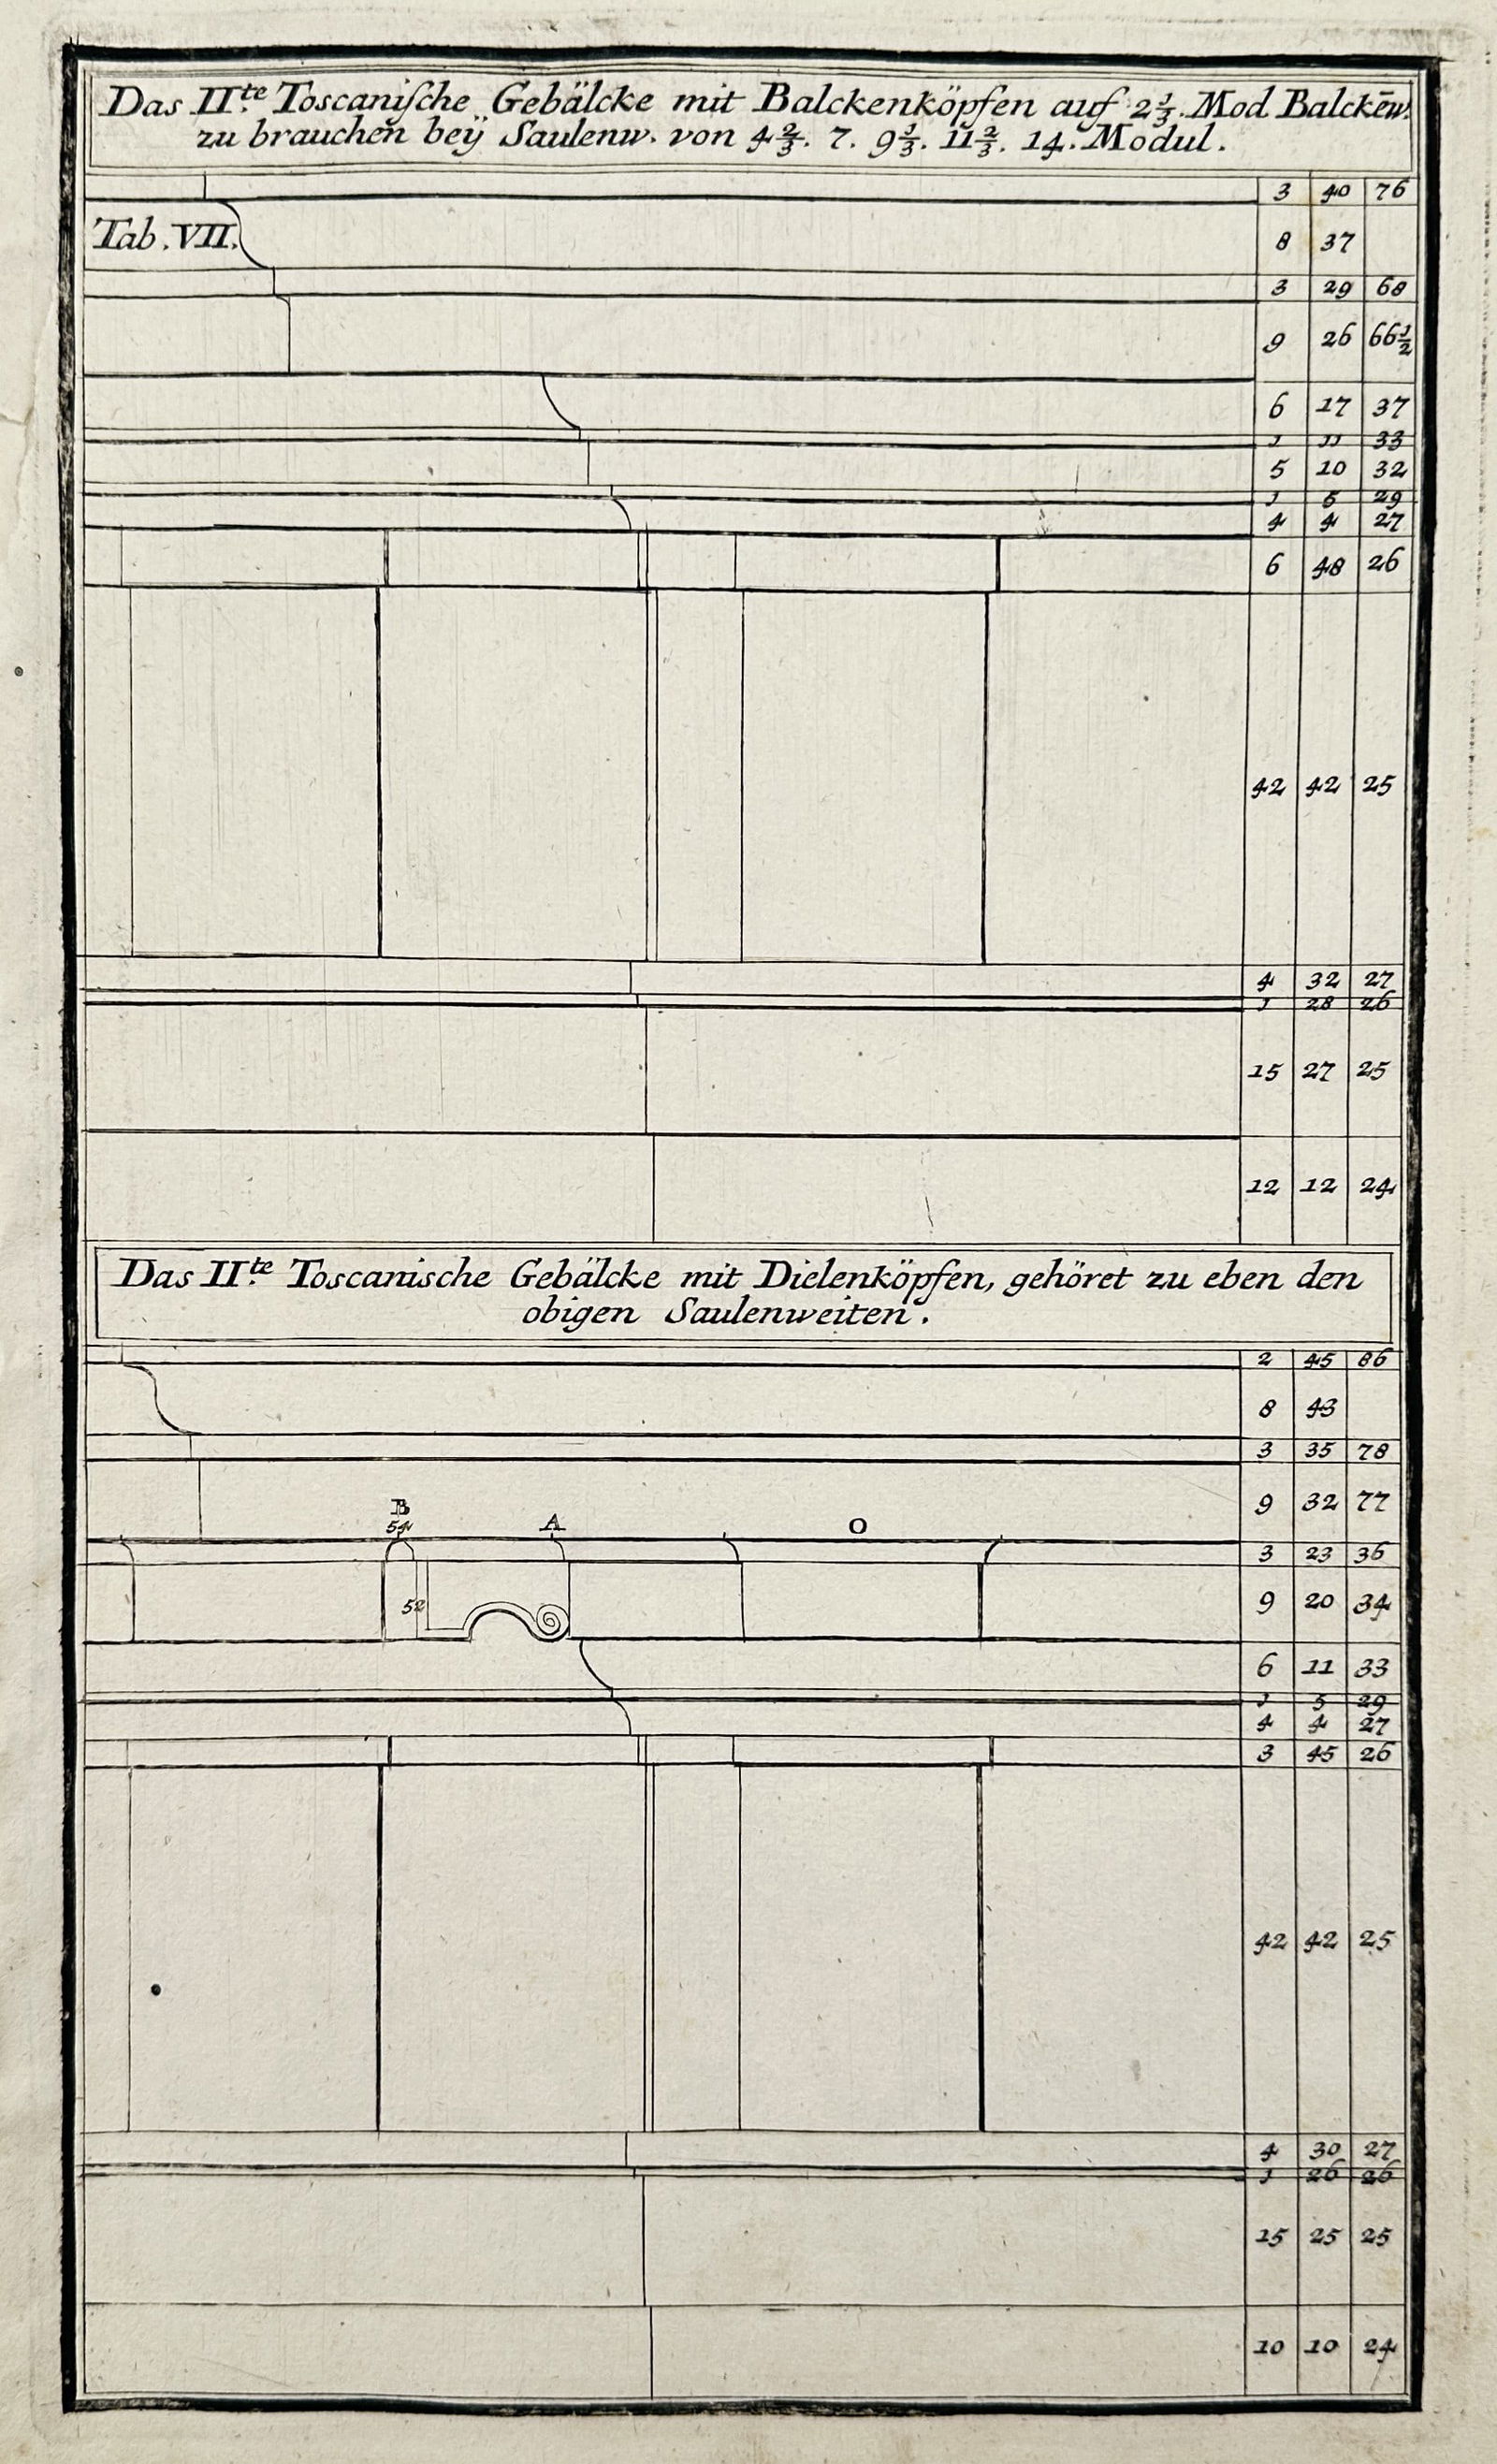 Das IIte Toscaniſche Gebälcke mit Balckenköpfen auf 2⅓. Mod Balckēw.
zu brauchen beÿ Saulenw. von 4⅔. 7. 9⅓. 11⅔. 14. Modul.
3 40 76
Tab. VII.
8 37
3 29 68
9 26 66½
6 17 37
1 11 33
5 10 32
1 5 29
4 4 27
6 48 26
42 42 25
4 32 27
1 28 26
15 27 25
12 12 24
Das IIte Toscanische Gebälcke mit Dielenköpfen, gehöret zu eben den
obigen Saulenweiten.
2 45 86
8 43
3 35 78
9 32 77
B
54 A O
3 23 36
52 9 20 34
6 11 33
1 5 29
4 4 27
3 45 26
42 42 25
4 30 27
1 26 26
15 25 25
10 10 24